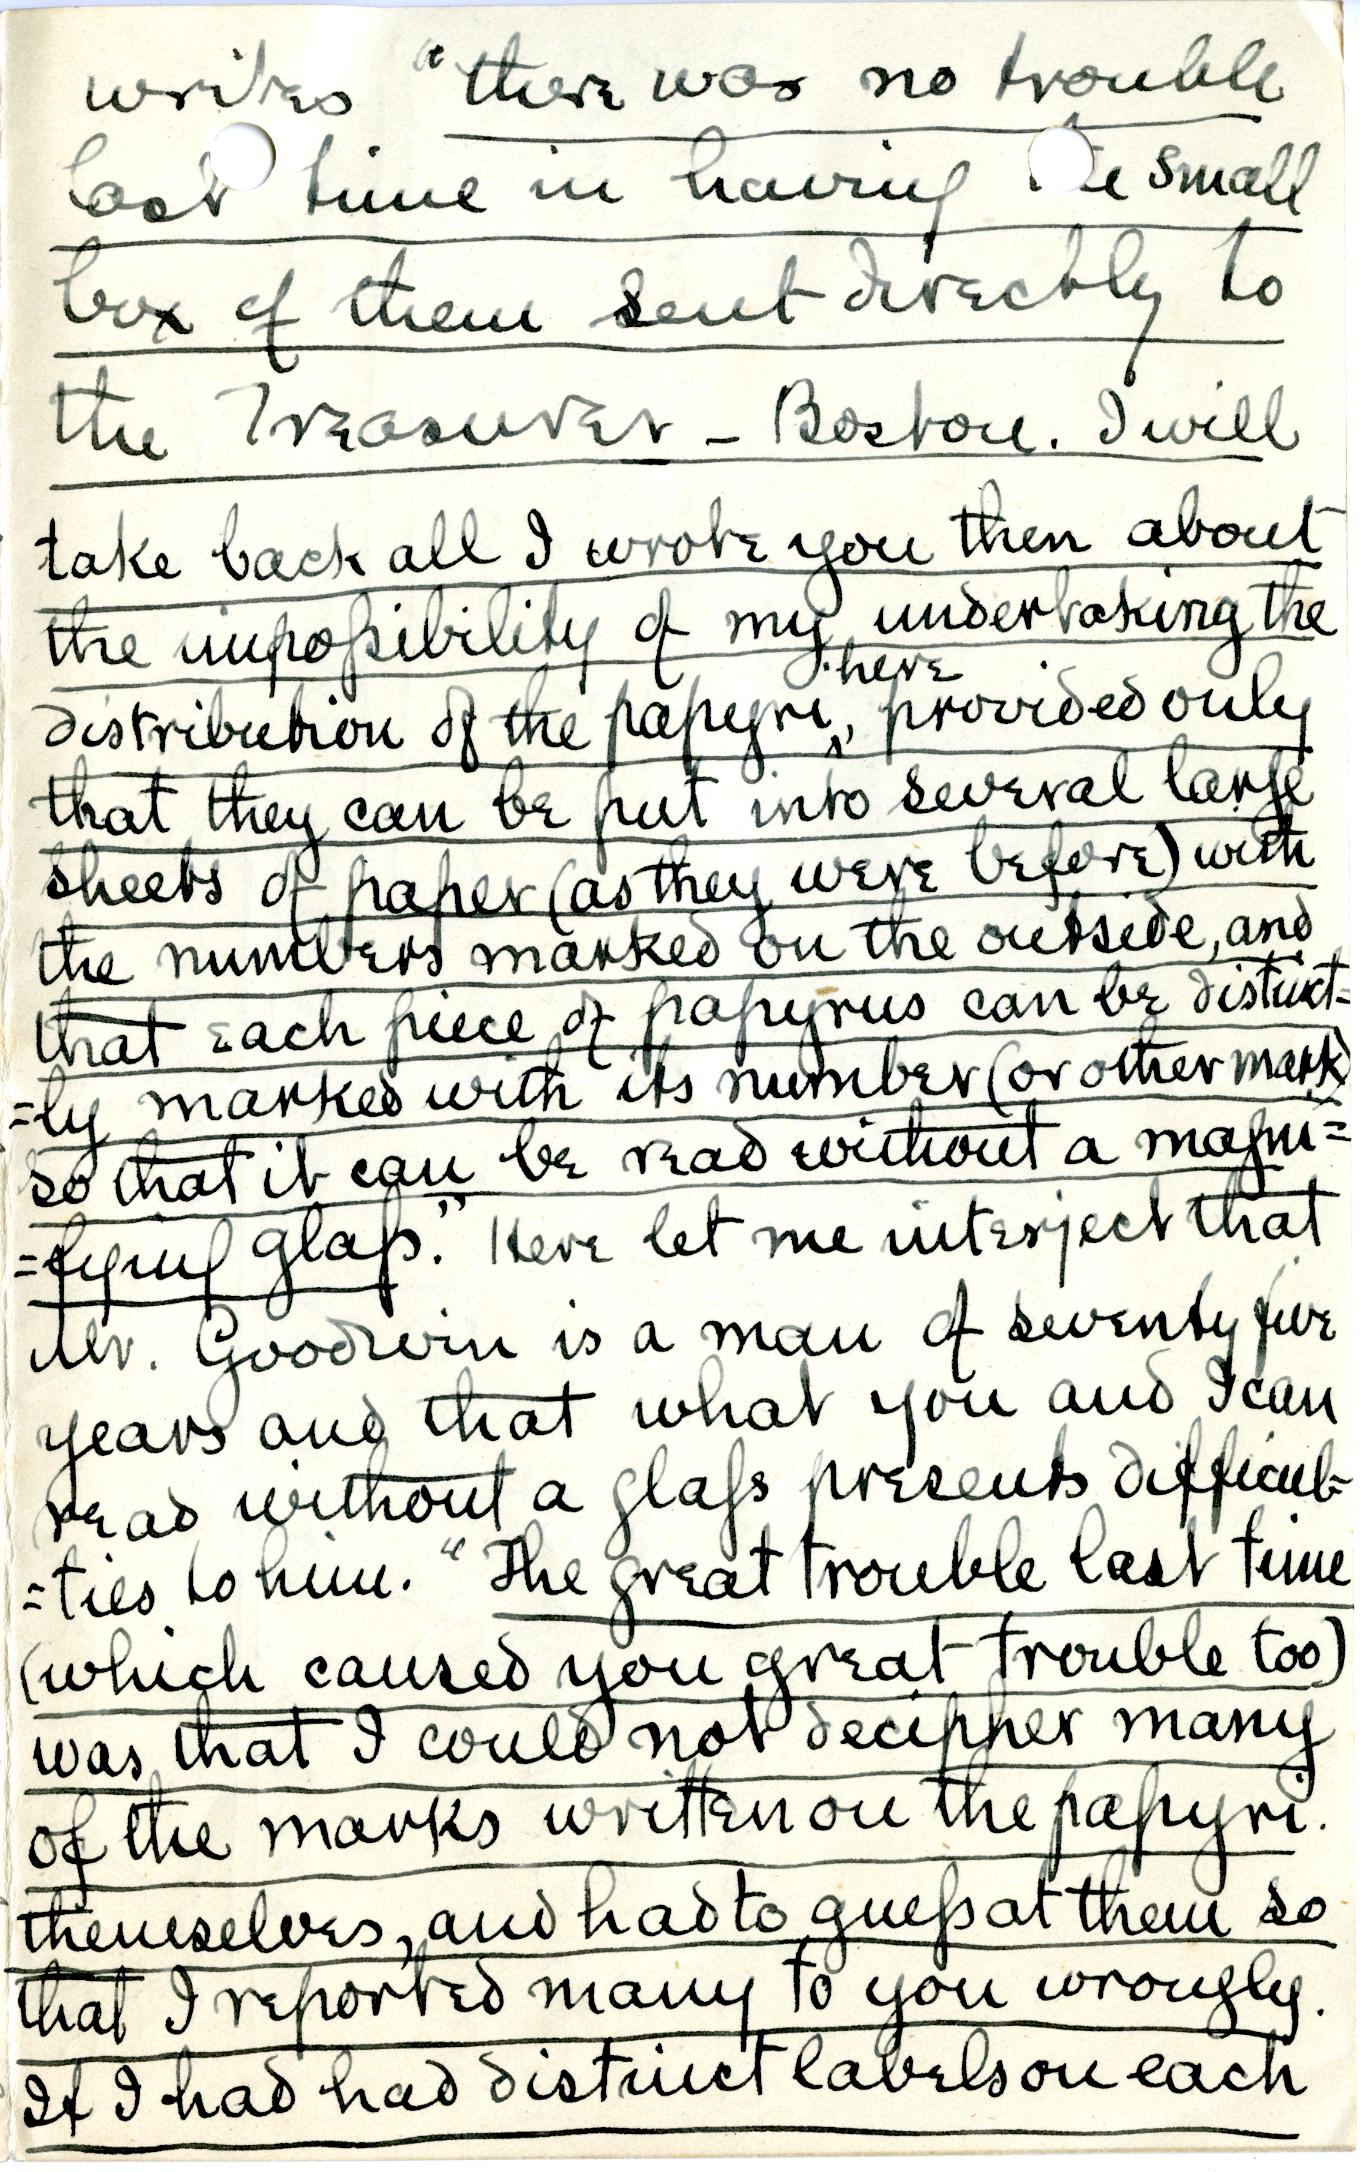 writes "there was no trouble
last time in having the small
box of them sent directly to
the Treasurer – Boston. I will
take back all I wrote you then about
the impoſsibility of my undertaking the
here
distribution of the papyri, provided only
that they can be put into several large
sheets of paper (as they were before) with
the numbers marked on the outside, and
that each piece of papyrus can be distinct=
=ly marked with its number (or other mark)
so that it can be read without a magni=
=fying glaſs." Here let me interject that
Mr. Goodwin is a man of seventy five
years and that what you and I can
read without a glaſs presents difficul-
=ties to him. "The great trouble last time
(which caused you great trouble too)
was that I could not decipher many
of the marks written on the papyri.
themselves, and had to gueſs at them so
that I reported many to you wrongly.
If I had had distinct labels on each